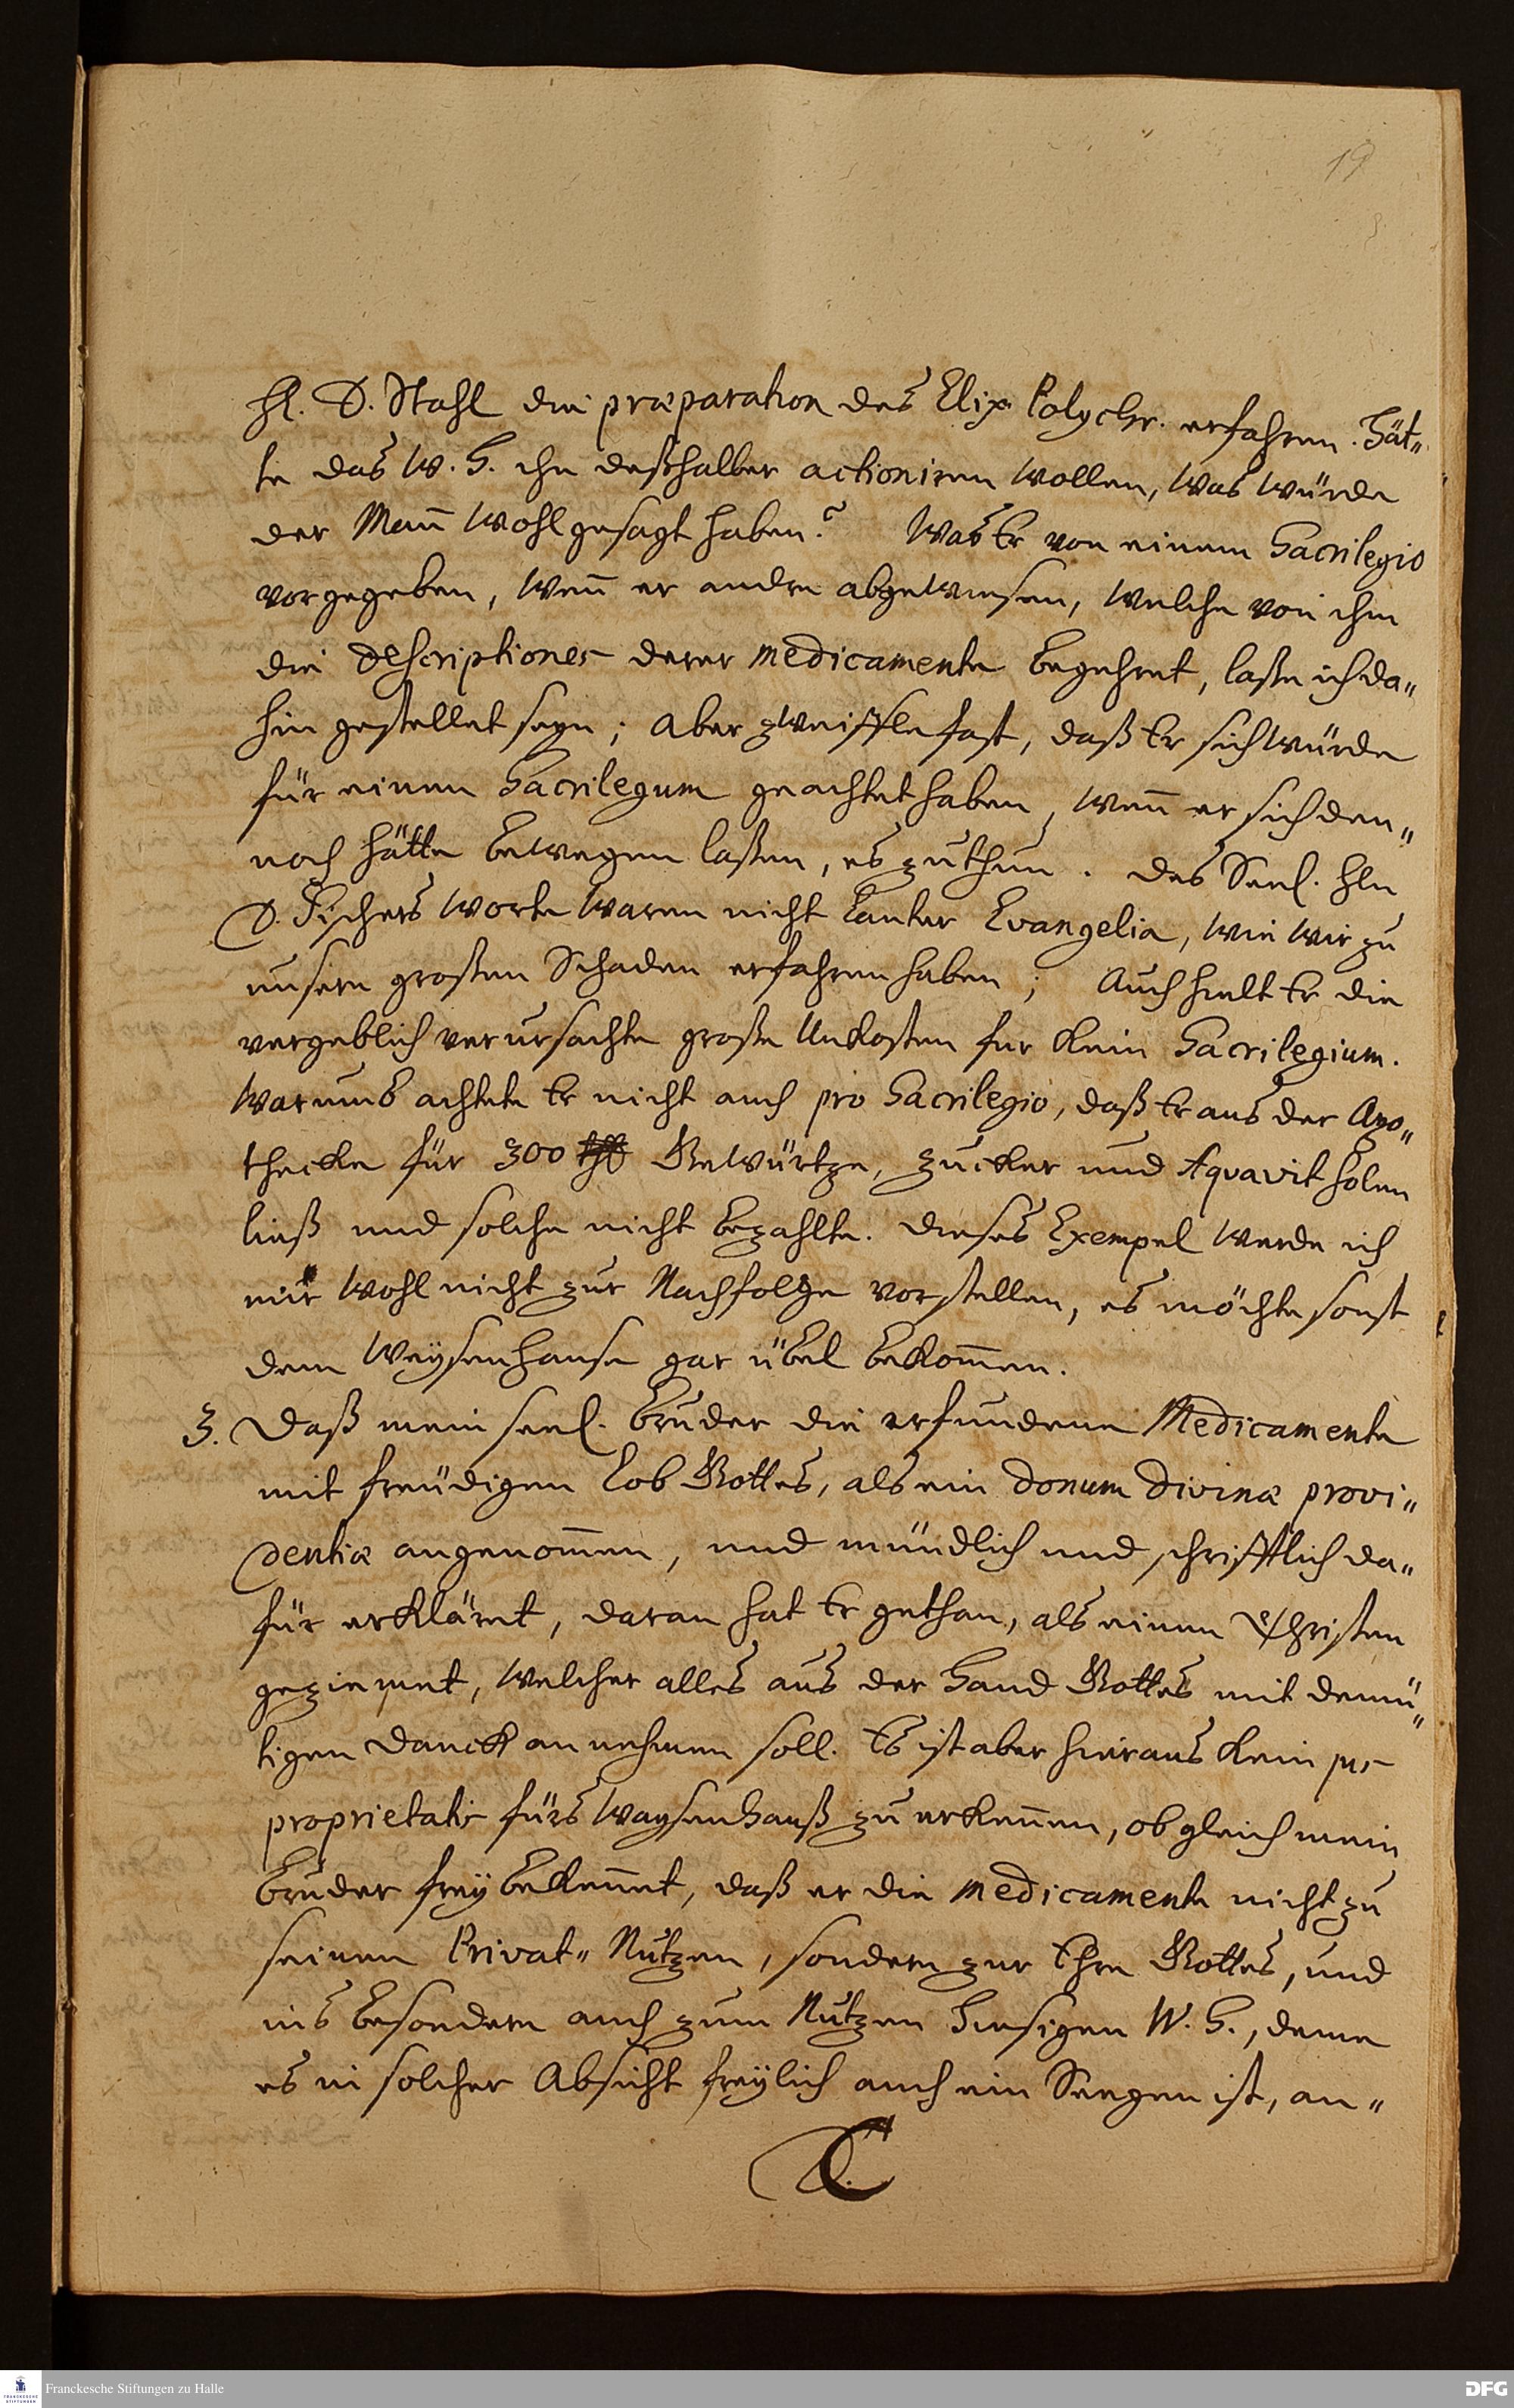 19
Hl. D. Stahl die præparation des Elix. Polychr. erfahren. Hät„
te das W. H. ihn deßhalber actioniren wollen, was würde
der Mañ wohl gesagt haben? Was Er von einem Sacrilegio
vorgegeben, weñ er andre abgewiesen, welche von ihm
die descriptiones derer medicamente begehret, laße ich da„
hin gestellet seyn; aber zweiffle fast, daß Er sich würde
für einen Sacrilegum geachtet haben, weñ er sich den„
noch hätte bewegen laßen, es zu thun. Des Seel. Hln
D. Fischers Worte waren nicht lauter Evangelia, wie wir zu
unsern großen Schaden erfahren haben; Auch hielt Er die
vergeblich verursachte große Unkosten fur kein Sacrilegium.
Warumb achtete Er nicht auch pro Sacrilegio, daß Er aus der Apo„
thecke für 300 thl Gewürtze, Zucker und Aquavit holen
ließ und solche nicht bezahlte. Dieses Exempel werde ich
mir wohl nicht zur Nachfolge vorstellen, es möchte sonst
dem Weysenhause gar übel bekom̃en.
3. Daß mein seel. Bruder die erfundene Medicamente
mit freudigen Lob Gottes, als ein donum divinæ provi„
dentiæ angenom̃en, und mündlich und schrifftlich da„
für erkläret, daran hat Er gethan, als einen Christen
geziemet, welcher alles aus der Hand Gottes mit demü„
tigen Danck annehmen soll. Es ist aber hieraus kein jus
proprietatis fürs Waysenhauß zu erkeñen, ob gleich mein
Bruder frey bekeñet, daß er die medicamente nicht zu
seinen Privat„ Nutzen, sondern zur Ehre Gottes, und
ins besondern auch zum Nutzen hiesigen W. H., deme
es in solcher Absicht freylich auch ein Seegen ist, an„
C
Franckesche Stiftungen zu Halle
FRANCKESCHE STIFTUNGEN
DFG